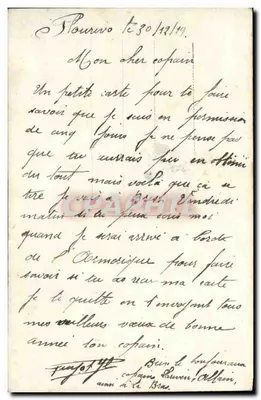 le 30/12/19
Mon cher copain
Un petite carte pour te faire
savoir que je suis en permission
de cinq jours je ne pense pas
que tu aurais peu en
du tout mais voilà que ça se
tire je suis Brest Vendredi
matin si tu peux
quand je serai arrivé a bord
de l'Armorique pour faire
savoir si tu as reçu ma carte
je te quitte en t'envoyant tous
mes meilleurs vœux de bonne
année ton copain
Bien le bonjour aux
copains Allain,
aussi à Le Bras.